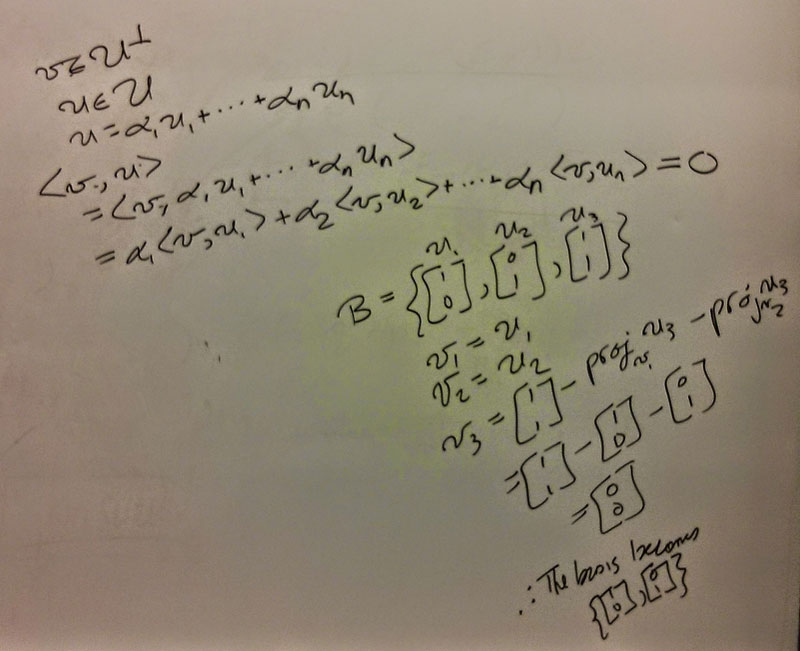 v ∈ U⊥
u ∈ U
u = α₁u₁ + ··· + αₙuₙ
⟨v, u⟩
= ⟨v, α₁u₁ + ··· + αₙuₙ⟩
= α₁⟨v, u₁⟩ + α₂⟨v, u₂⟩ + ··· + αₙ⟨v, uₙ⟩ = 0
u₁ u₂ u₃
B = {[1 0], [0 1], [1 1]}
v₁ = u₁
v₂ = u₂
v₃ = [1 1] − proj_v₁ u₃ − proj_v₂ u₃
= [1 1] − [1 0] − [0 1]
= [0 0]
∴ The basis becomes
{[1 0], [0 1]}